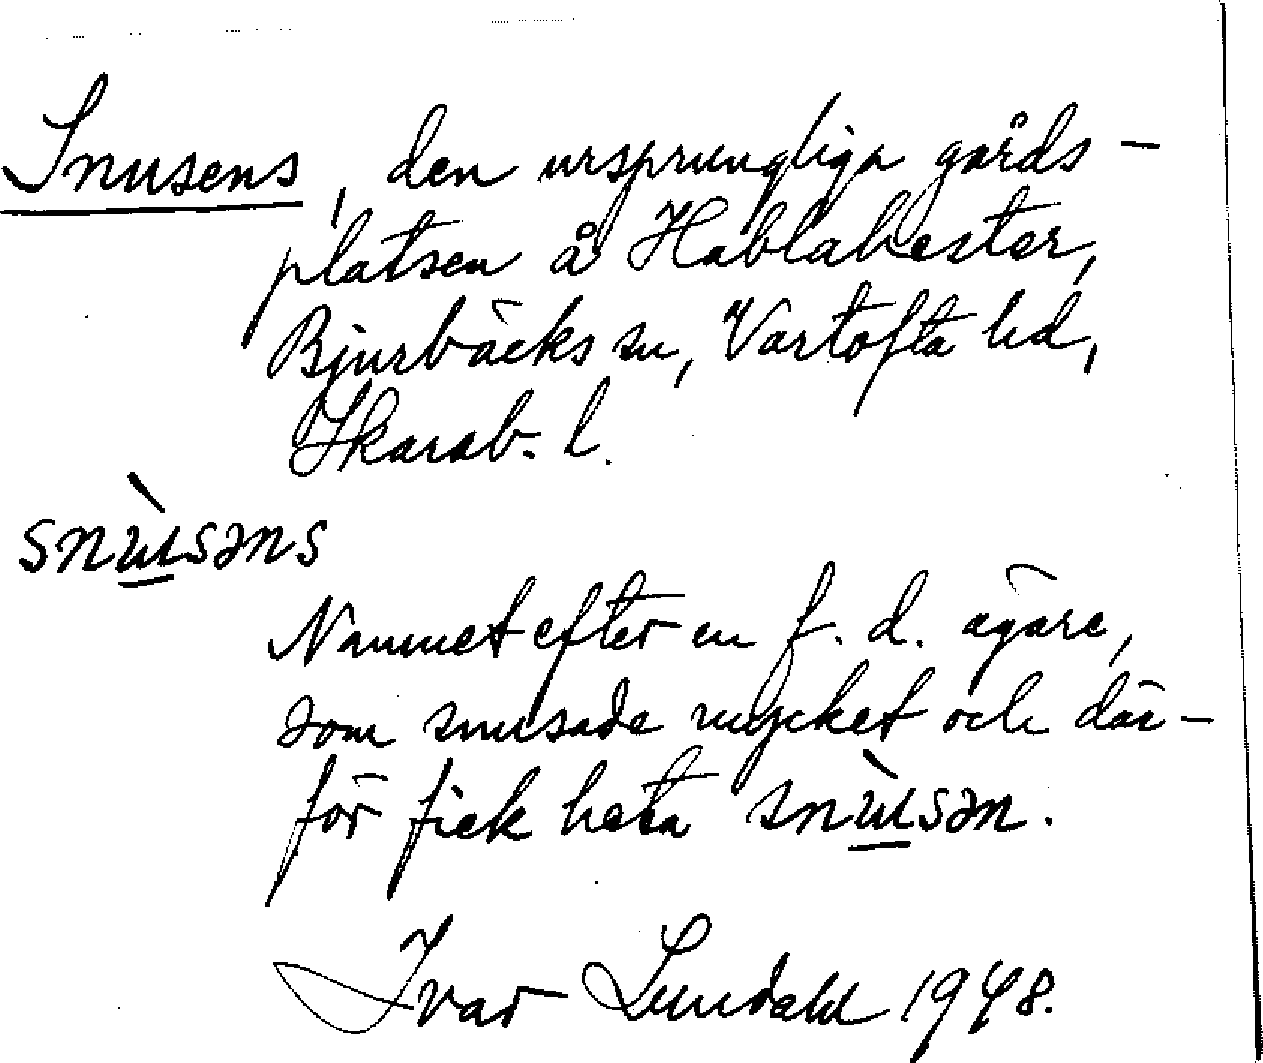 Snusens, den ursprungliga gårds-
platsen å Håblahester,
Bjurbäcks sn, Vartofta hd,
Skarab. l.
snùsəns
Namnet efter en f. d. ägare,
som snusade mycket och där-
för fick heta snùsən.
Ivar Lundahl 1948.